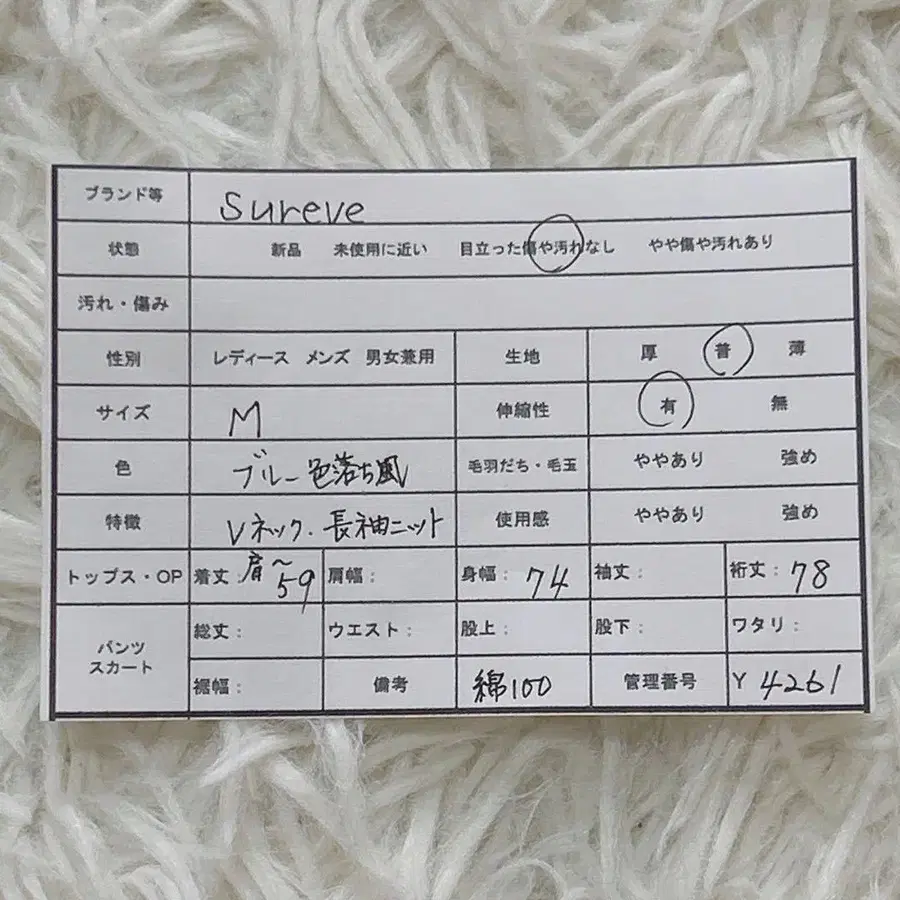 ブランド等 Sureve
状態 新品 未使用に近い 目立った傷や汚れなし やや傷や汚れあり
汚れ・傷み
性別 レディース メンズ 男女兼用 生地 厚 普 薄
サイズ M 伸縮性 有 無
色 ブルー色落ち風 毛羽だち・毛玉 ややあり 強め
特徴 Vネック.長袖ニット 使用感 ややあり 強め
トップス・OP 着丈: 肩〜59 肩幅: 身幅: 74 袖丈: 裄丈: 78
パンツ スカート 総丈: ウエスト: 股上: 股下: ワタリ:
裾幅: 備考 綿100 管理番号 Y 4261